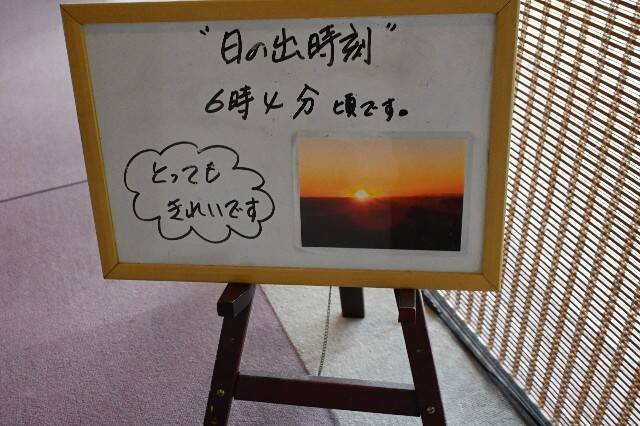 "日の出時刻"
6時4分頃です。
とっても
きれいです